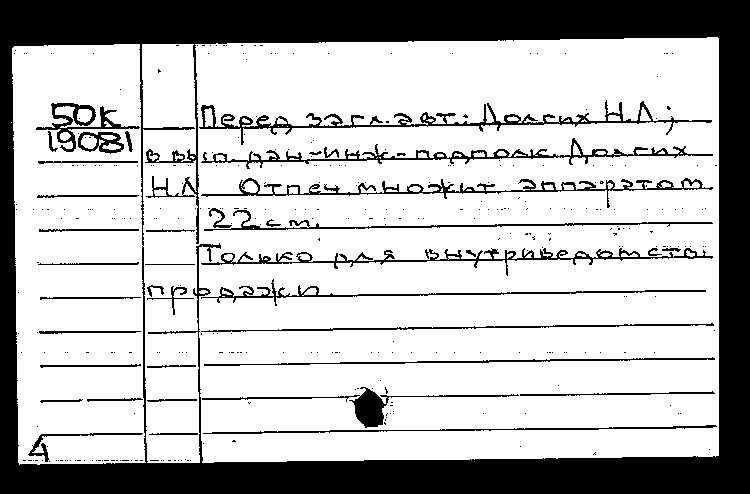 50К
19081
Перед загл. авт.: Долгих Н.Л;
в вып. дан.-инж-подполк. Долгих
Н.Л Отпеч. множит аппаратом.
22 см.
Только для внутриведомств.
продажи.
4